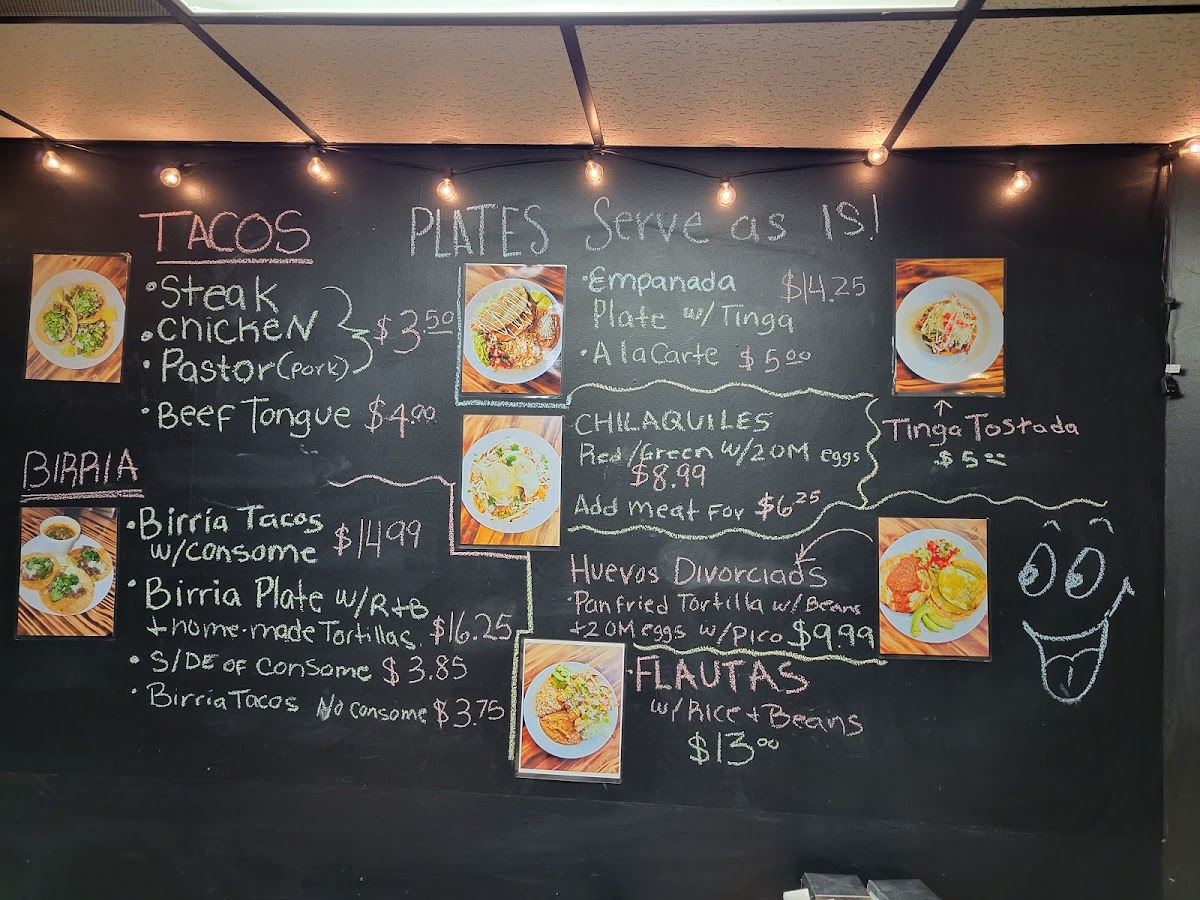 TACOS
• Steak
• Chicken
• Pastor (Pork)
$3.50
• Beef Tongue $4.00
BIRRIA
• Birria Tacos
w/consome $14.99
• Birria Plate w/R+B
+ home-made Tortillas. $16.25
• SIDE of Consome $3.85
• Birria Tacos No consome $3.75
PLATES Serve as IS!
• Empanada $14.25
Plate w/Tinga
• A la Carte $5.00
CHILAQUILES
Red/Green w/2OM eggs
$8.99
Add meat For $6.25
Tinga Tostada
$5.00
Huevos Divorciads
• Pan fried Tortilla w/ Beans
+2OM eggs w/Pico $9.99
• FLAUTAS
w/Rice + Beans
$13.00